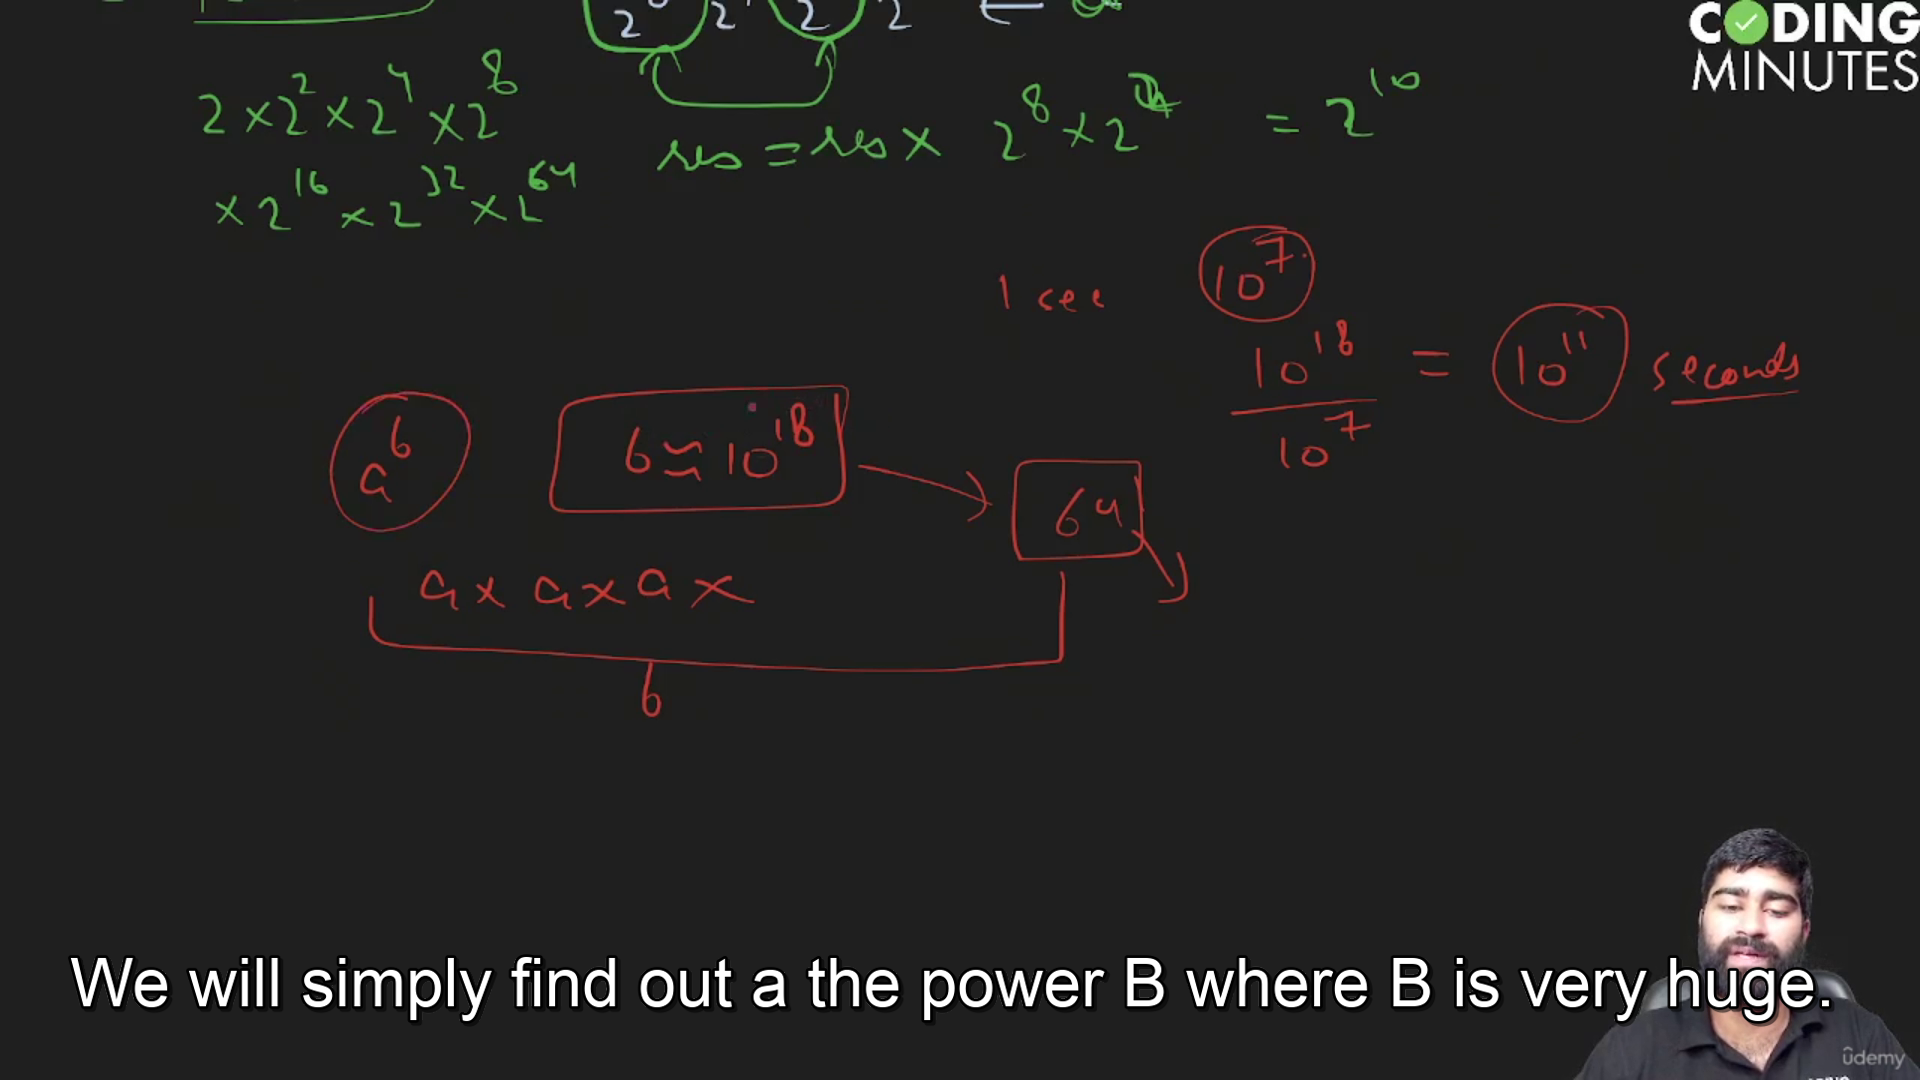 2⁰ 2¹ 2 2
CODING
MINUTES
2 × 2² × 2⁴ × 2⁸
res = res × 2⁸ × 2 = 2¹⁰
× 2¹⁶ × 2³² × 2⁶⁴
1 sec 10⁷
10¹⁸ / 10⁷ = 10¹¹ seconds
aᵇ
b ≈ 10¹⁸
64
a × a × a ×
b
We will simply find out a the power B where B is very huge.
ûdemy